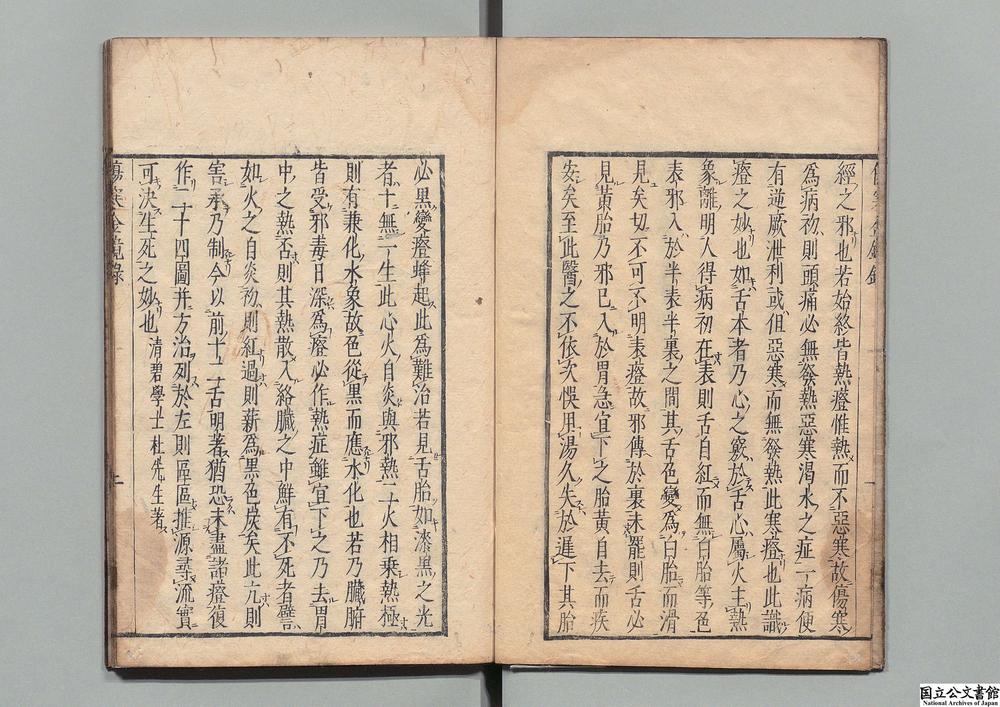 經之邪也若始終皆熱證惟熱而不惡寒故傷寒
為病初則頭痛必無發熱惡寒渴水之症一病便
有逆厥泄利或但惡寒而無發熱此寒證也此識
證之妙也如舌本者乃心之竅於舌心屬火主熱
象離明人得病初在表則舌自紅而無白胎等色
表邪入於半表半裏之間其舌色變為白胎而滑
見矣切不可不明表證故邪傳於裏未罷則舌必
見黃胎乃邪已入於胃急宜下之胎黃自去而疾
安矣至此醫之不依次悞用湯久失於遲下其胎
必黑變證蜂起此為難治若見舌胎如漆黑之光
者十無一生此心火自炎與邪熱二火相乘熱極
則有兼化水象故色從黑而應水化也若乃臟腑
皆受邪毒日深為證必作熱症雖宜下之乃去胃
中之熱否則其熱散入絡臟之中鮮有不死者譬
如火之自炎初則紅過則薪為黑色炭矣此亢則
害承乃制今以前十二舌明著猶恐未盡諸證復
作二十四圖并方治列於左則區區推源尋流實
可決生死之妙也 清碧學士 杜先生著
傷寒金鏡錄
二
国立公文書館
National Archives of Japan